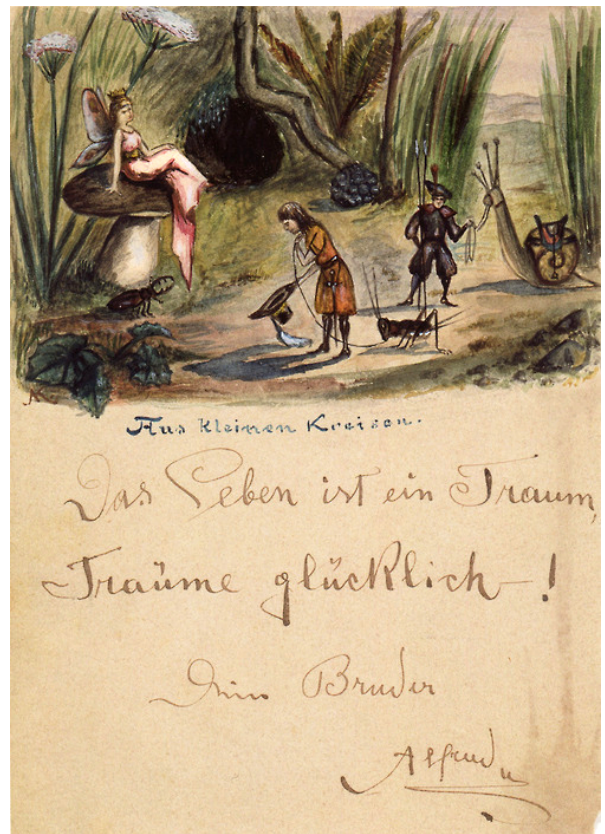 Aus kleinen Kreisen.
Das Leben ist ein Traum,
Traüme glücklich–!
Dein Bruder
Alfred